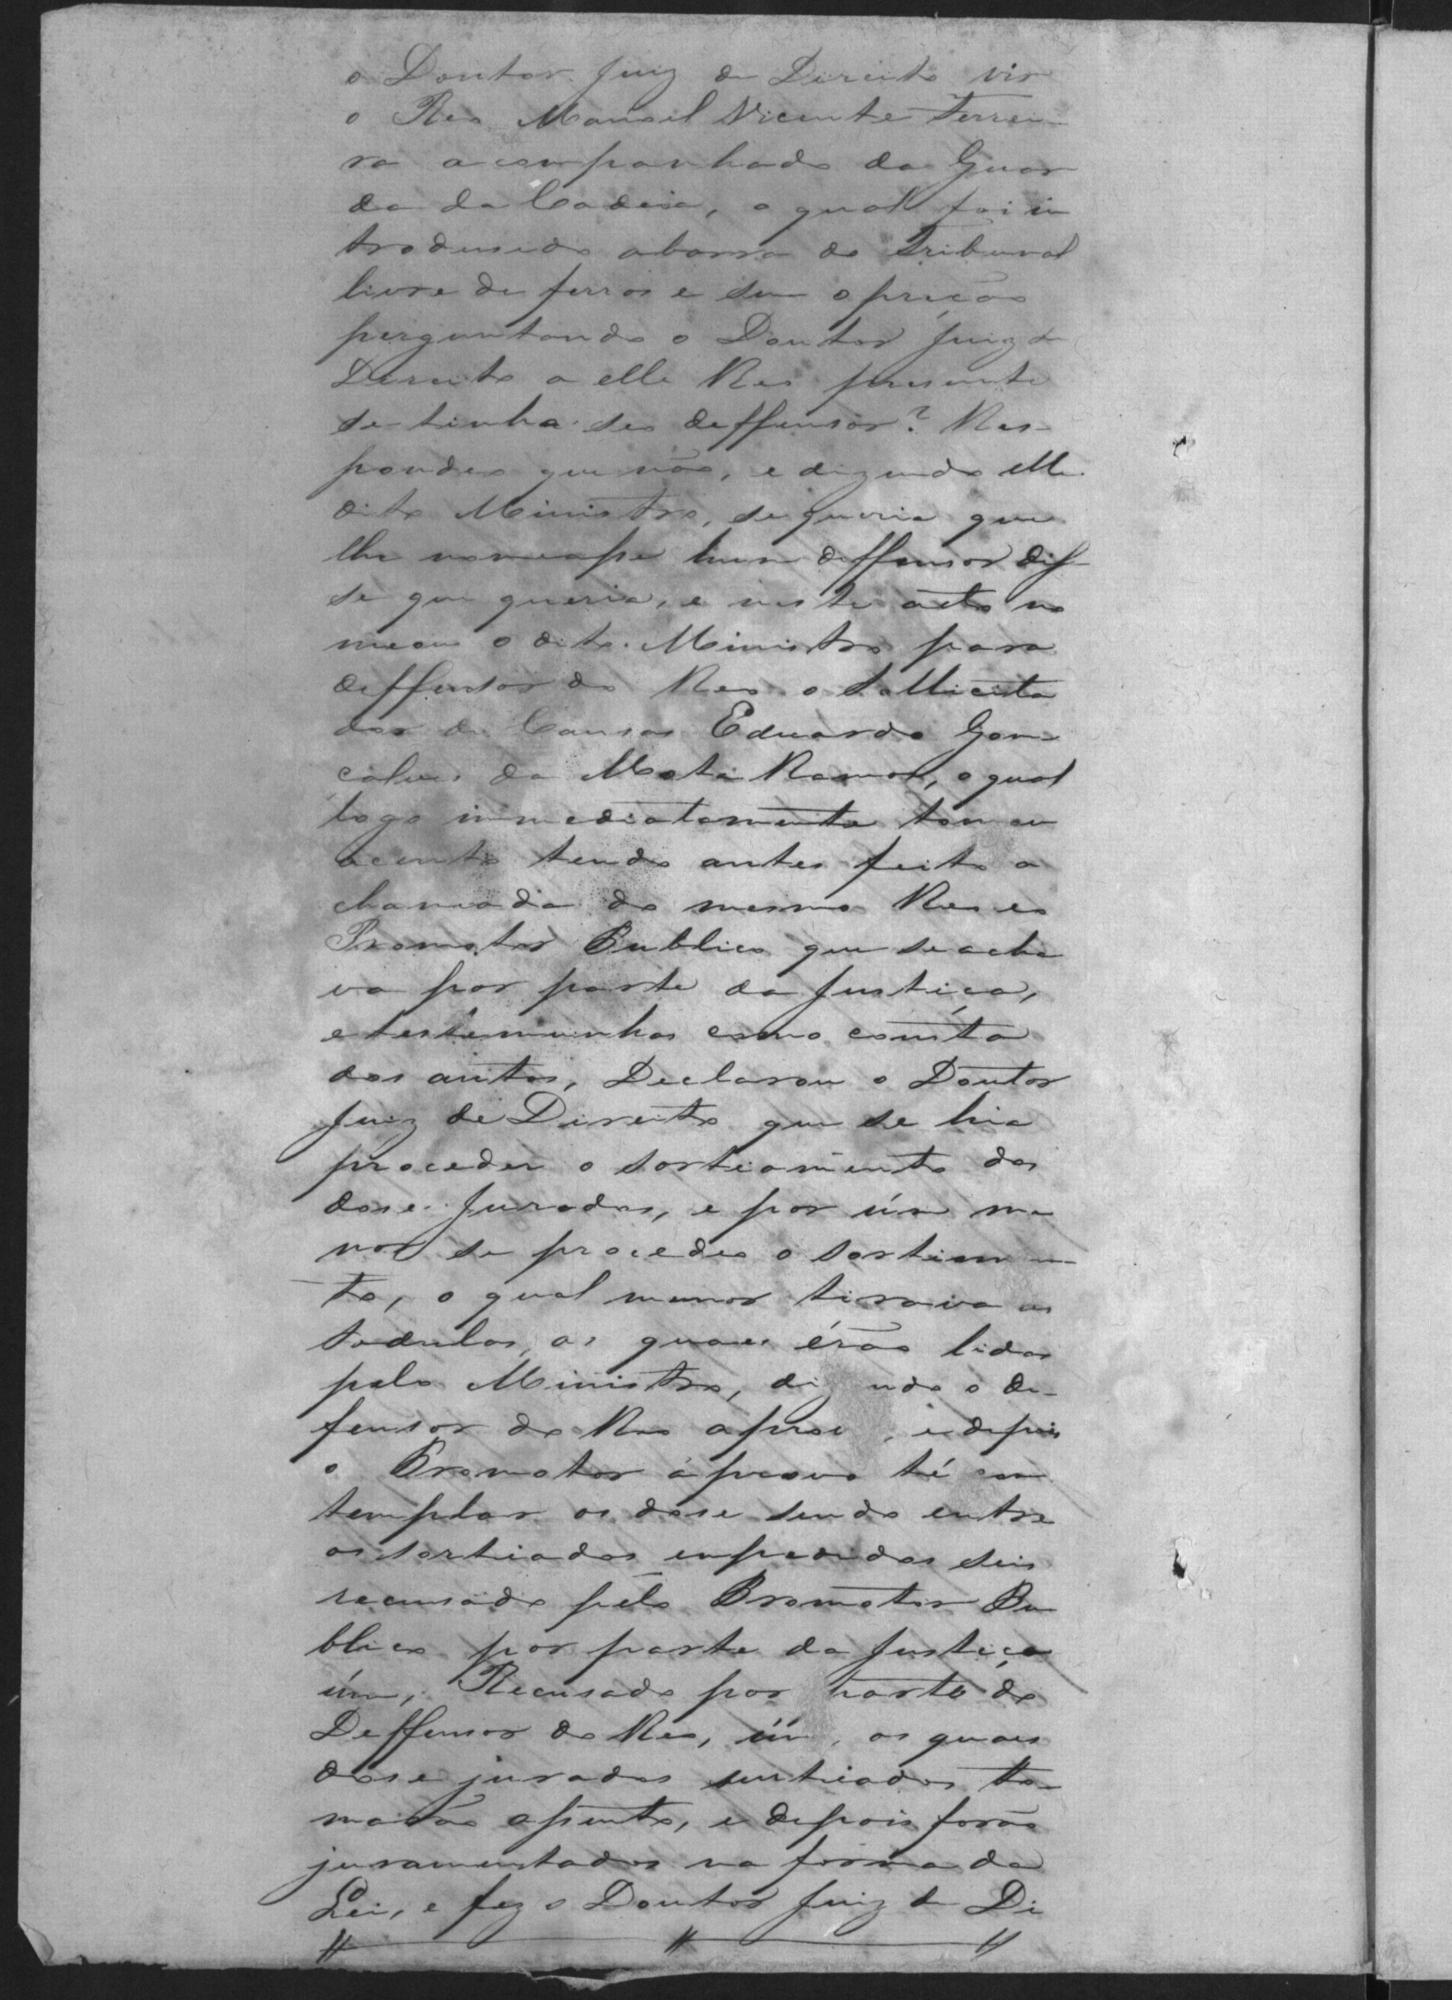 o Doutor Juiz de Direito vir
o Reo Manoel Vicente Ferrei-
ra acompanhado da Guar
da da Cadeia, o qual foi in
trodusido abarra do Tribunal
livre de ferros e sem opreçaõ
perguntando o Doutor Juiz de
Direito a elle Reo presente
se tinha seo deffensor? Res-
pondeo que não, e dizendo elle
dito Ministro, se queria que
lhe nomeasse hum deffensor dis-
se que queria, e neste acto no
meou o dito Ministro para
deffensor do Reo o Sollicita
dor de Causas Eduardo Gon-
çalves da Mota Ramos, o qual
logo immediatamente tomou
acento tendo antes feito a
chamada do mesmo Reo eo
Promotor Publico que se acha
va por parte da Justiça,
e testemunhas como consta
dos autos, Declarou o Doutor
Juiz de Direito que se hia
proceder o sorteamento dos
dose Jurados, e por úm me
nor se procedeo o sortime
to, o qual menor tirava as
sedulas, as quaes éraõ lidas
pelo Ministro, di ndo o de-
fensor do Reo aprov , e depois
o Promotor áprovo té con
templar os dose sendo entre
os sorteados empedidos seis
recusado pelo Promotor Pu
blico por parte da Justiça
úm, Recusado por parte do
Deffensor do Reo, úm, os quaes
dose jurados sorteados to-
maraõ assento, e depois foraõ
juramentados na forma da
Lei, e fez o Doutor Juiz de Di